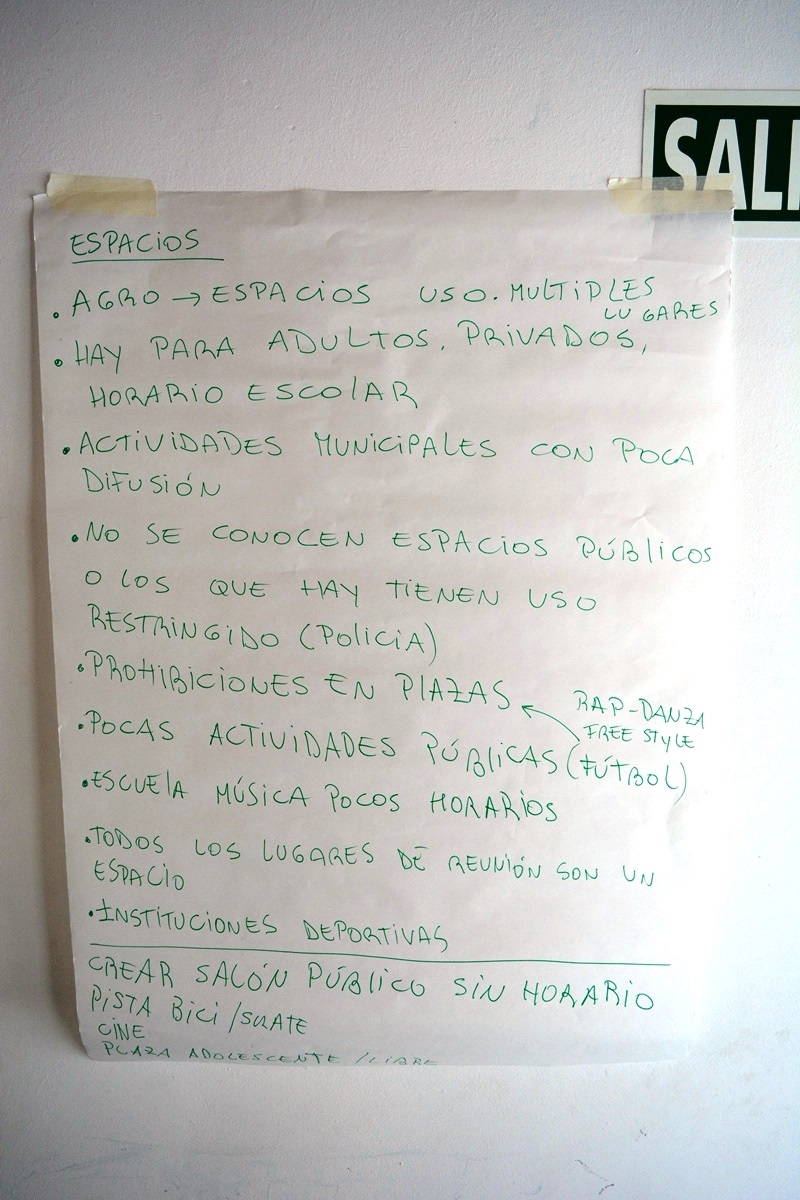 SALI
ESPACIOS
. AGRO → ESPACIOS USO. MULTIPLES
LUGARES
. HAY PARA ADULTOS, PRIVADOS,
HORARIO ESCOLAR
. ACTIVIDADES MUNICIPALES CON POCA
DIFUSIÓN
. NO SE CONOCEN ESPACIOS PÚBLICOS
O LOS QUE HAY TIENEN USO
RESTRINGIDO (POLICIA)
. PROHIBICIONES EN PLAZAS
RAP-DANZA
FREE STYLE
. POCAS ACTIVIDADES PÚBLICAS (FÚTBOL)
. ESCUELA MÚSICA POCOS HORARIOS
. TODOS LOS LUGARES DE REUNIÓN SON UN
ESPACIO
. INSTITUCIONES DEPORTIVAS
CREAR SALÓN PÚBLICO SIN HORARIO
PISTA BICI / SKATE
CINE
PLAZA ADOLESCENTE / LIBRE